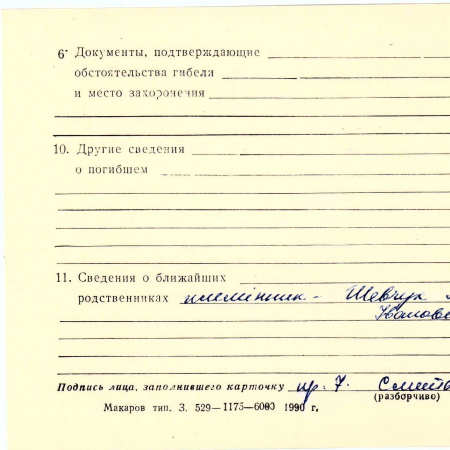 6· Документы, подтверждающие
обстоятельства гибели
и место захоронения
10. Другие сведения
о погибшем
11. Сведения о ближайших
родственниках племінник - Шевчук
Подпись лица, заполнившего карточку
(разборчиво)
Макаров тип. З. 529—1175—6000 1990 г.